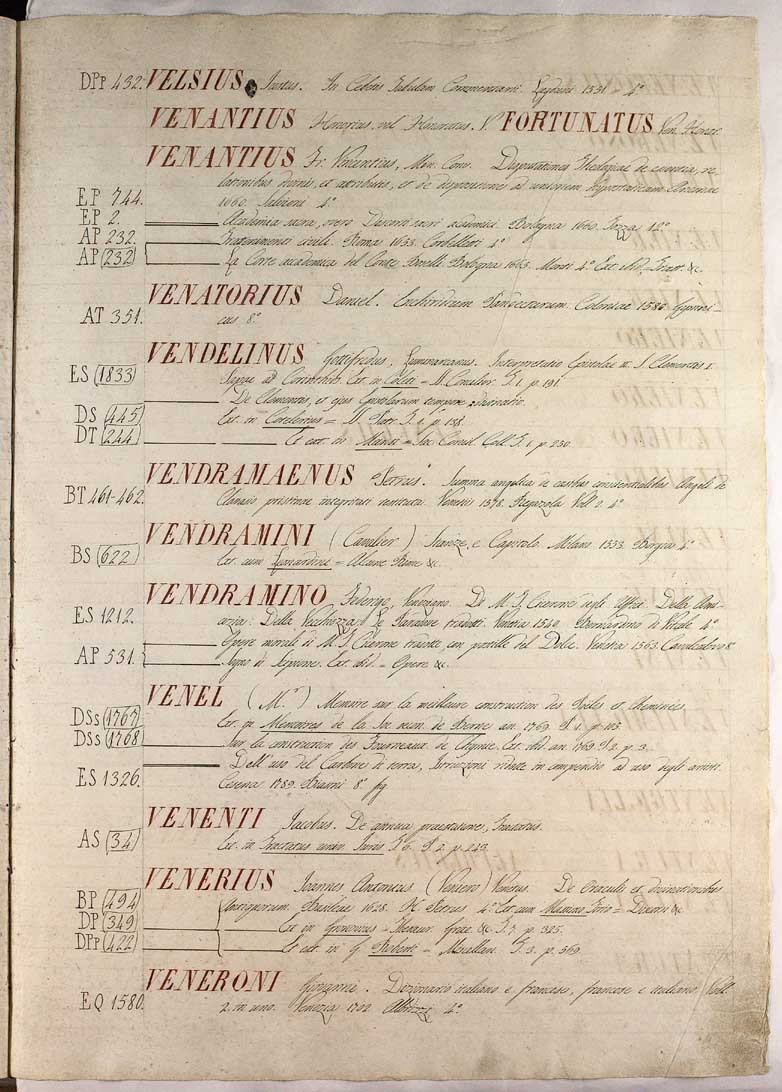 DPp 432. VELSIUS Justus. In Cebetis Tabulam Commentarii. Lugduni 1551 = 4°
VENANTIUS Honorius, vel Honoratus. V. FORTUNATUS Ven. Honor.
VENANTIUS Fr. Venantius, Mon. Cam. Disputationes Theologicae de essentia, re-
lationibus divinis, et attributis, et de dispositione ad unionem hypostaticam
EP 744. 1660. 4°
EP 2. Academia sacra, overo Discorsi sacri academici. Bologna 1660. 12°
AP 232. Trattenimenti civili. Roma 1653. Corbelletti 4°
AP (232) La Corte academica del Conte Bologna 1663. Monti 4° Ext. ibid. Tratt. &c.
VENATORIUS Daniel. Enchiridium Coloniae 1580. Gymni-
AT 351. cus 8°
VENDELINUS Gottifredus. Interpretatio Epistolae S. Clementis I.
ES (1833) ad Corinthios Ext. in Coleti = Concilior. T. 1. p. 191.
De Clementis, et ejus Epistolarum tempore
DS (445) Ext. in Cotelerius = Patr. T. 1. p. 158.
DT (244) Et ext. in Mansi = Concil. Coll. T. 1. p. 230.
VENDRAMAENUS Petrus. Summa angelica de casibus conscientialibus Angeli de
BT 461-462. Clavasio pristinae integritati restituta. Venetiis 1578. Regazola Voll. 2. 4°
VENDRAMINI (Cavalier) Stanze, e Capitolo. Milano. 1553. Borgia 4°
BS (622) Ext. cum Leonardini = Alcune Rime &c.
VENDRAMINO Federigo, Veneziano. De M. T. Cicerone degli Uffici. Della Ami-
ES 1212. cizia. Della Vecchiezza. Le Paradosse tradotti. Venezia 1540. Bernardino di Vitale 4°
Opere morali di M. T. Cicerone tradotte, con postille del Dolce. Venetia 1563. Cavalcalovo 8°
AP 531. Sogno di Scipione. Ext. ibid. = Opere &c.
VENEL (M.r) Memoire sur la meilleure construction des Poeles et Cheminées
DSs (1767) Ext. in Mémoires de la Soc. oecon. de Bernes an. 1769. P. 1. p. 113.
DSs (1768) Sur la construction des Fourneaux de Chymie. Ext. ibid. an. 1769. P. 2. p. 3.
Dell'uso del Carbone di terra, Istruzioni ridotte in compendio ad uso degli artisti.
ES 1326. Cesena 1789. Biasini 8° fig.
VENENTI Jacobus. De annua praestatione, Tractatus.
AS (34) Ext. in Tractatus univ. Juris T. 6. P. 2. p. 243.
VENERIUS Joannes Antonius (Veniero) Venetus. De Oraculis et divinationibus
BP (494) Antiquorum. Basileae 1628. H. Petrus. 4° Ext. cum
DP (349) Ext. in Gronovius = Thesaur. Graec. &c. T. 7. p. 325.
DPp (422) Et ext. in = Miscellan. T. 3. p. 369.
VENERONI Giovanni. Dizionario italiano e francese, francese e italiano. Voll.
EQ 1580. 2. in uno. Venezia 1702. Albrizzi 4°